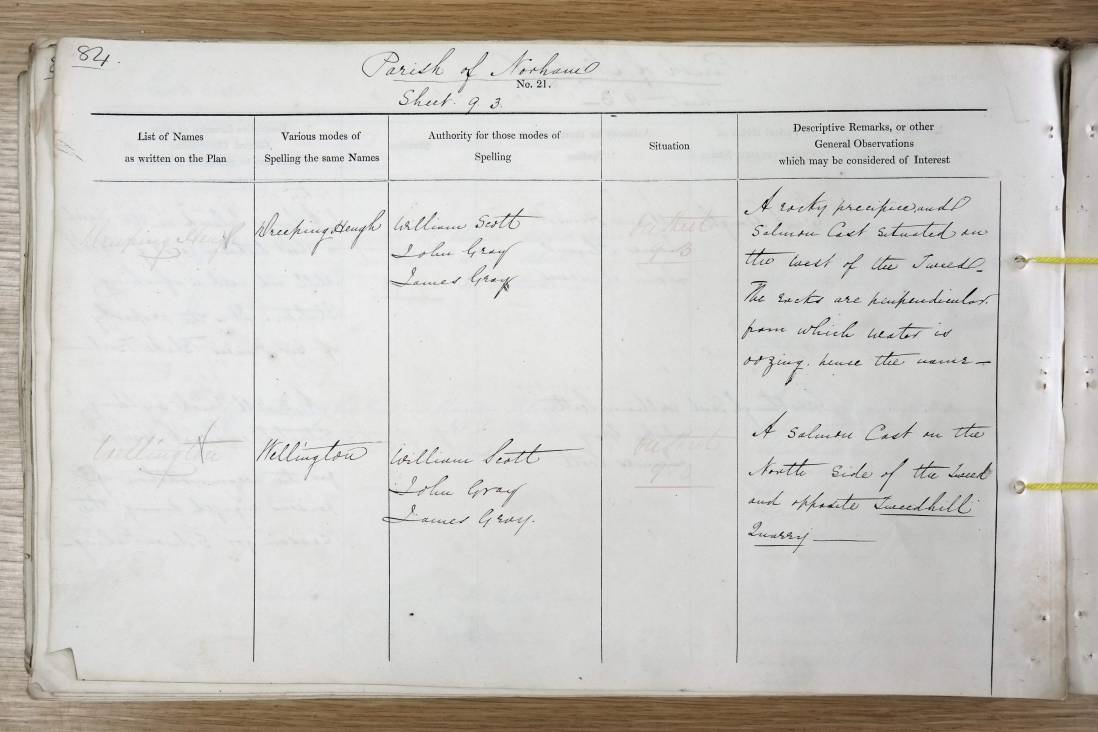 84.
Parish of Norham
No. 21.
Sheet. 9 3.
List of Names
as written on the Plan
Various modes of
Spelling the same Names
Authority for those modes of
Spelling
Situation
Descriptive Remarks, or other
General Observations
which may be considered of Interest
Weeping Heugh
Dreeping Heugh
William Scott
John Gray
James Gray
9-3
A rocky precipice and
Salmon Cast situated on
the west of the Tweed.
The rocks are perpendicular.
from which water is
oozing. hence the name —
Wellington
Wellington
William Scott
John Gray
James Gray.
9-3
A Salmon Cast on the
North side of the Tweed
and opposite Tweedhill
Quarry —